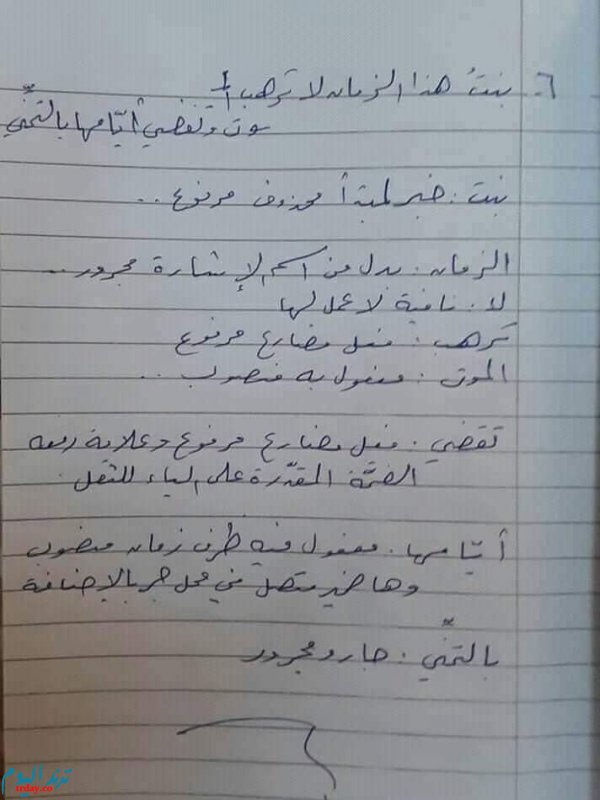 ٦- بنتُ هذا الزمان لا ترهب الـ
ـموت وتقضي أيّامها بالتمنّي
بنت : خبر لمبتدأ محذوف مرفوع ..
الزمان : بدل من اسم الإشارة مجرور ..
لا : نافية لا عمل لها
ترهب : فعل مضارع مرفوع
الموت : مفعول به منصوب ..
تقضي : فعل مضارع مرفوع وعلامة رفعه
الضمّة المقدّرة على الياء للثقل .
أيّامها : مفعول فيه ظرف زمان منصوب
وها ضمير متصل في محل جر بالإضافة
بالتمنّي : جار ومجرور
ترند اليوم
trday.co